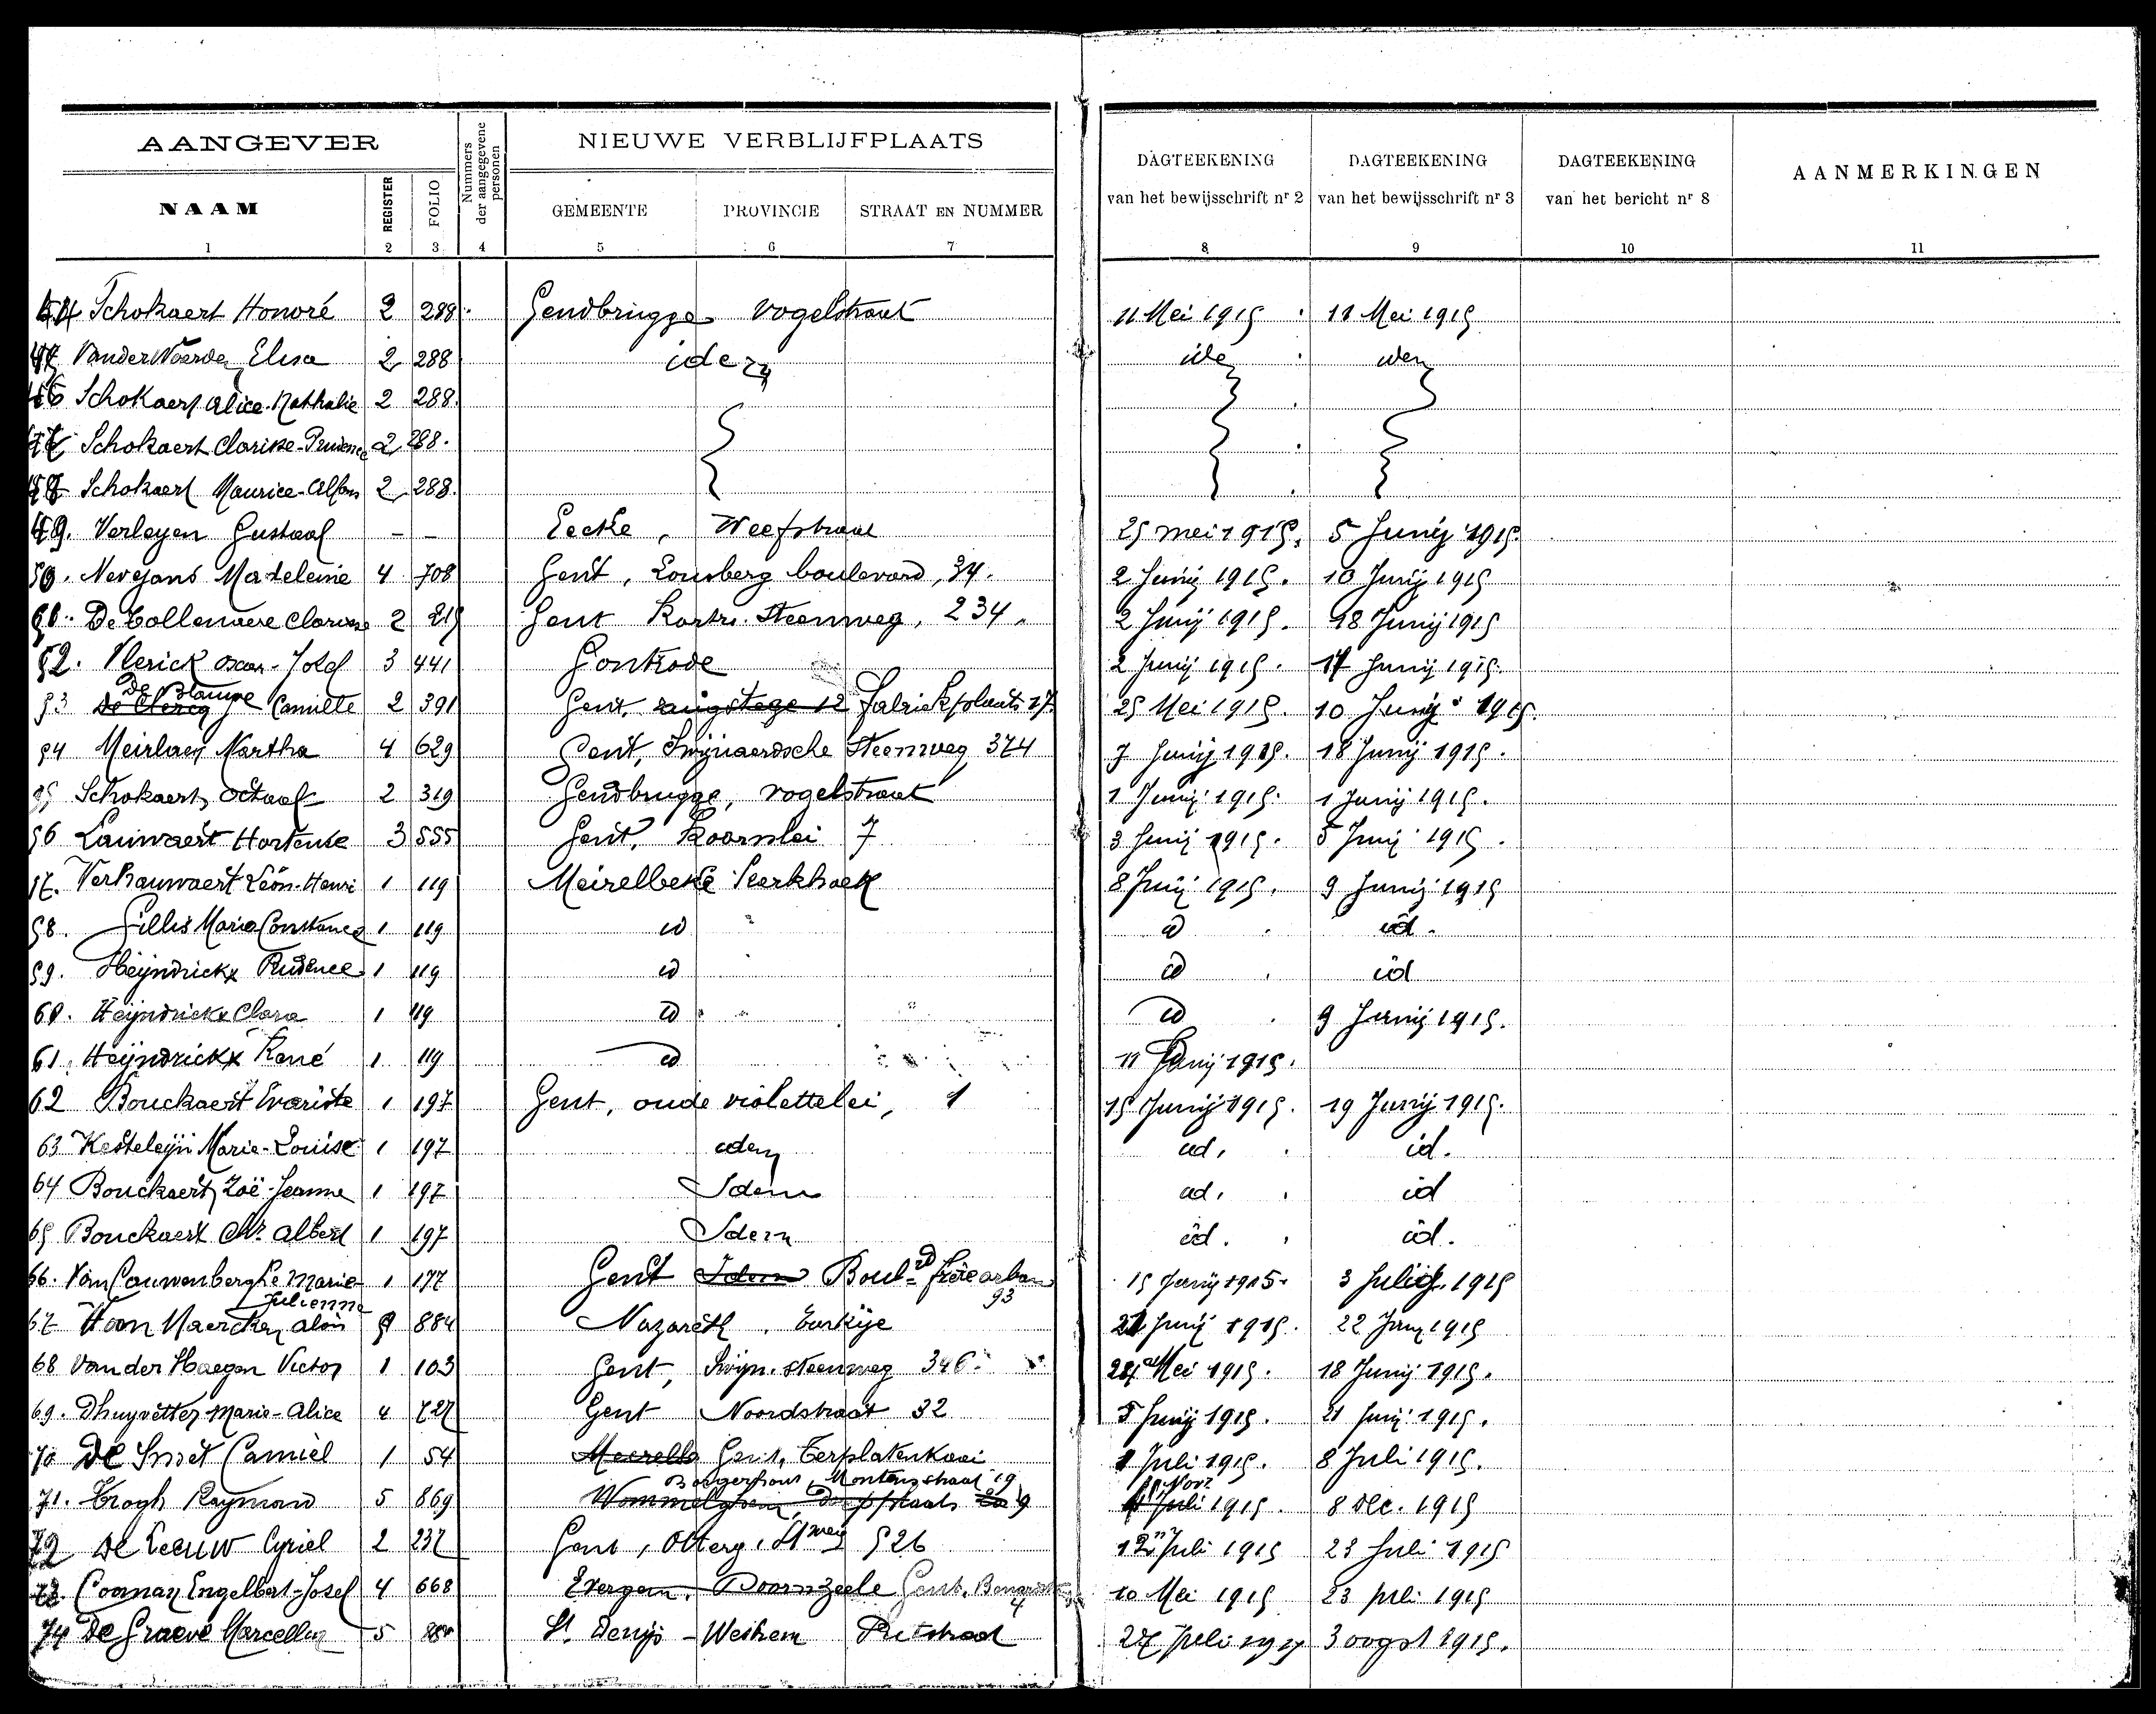 AANGEVER NIEUWE VERBLIJFPLAATS
NAAM REGISTER FOLIO Nummers der aangegevene personen GEMEENTE PROVINCIE STRAAT EN NUMMER DAGTEEKENING van het bewijsschrift nr 2 DAGTEEKENING van het bewijsschrift nr 3 DAGTEEKENING van het bericht nr 8 AANMERKINGEN
1 2 3 4 5 6 7 8 9 10 11
Schokaert Honoré 2 288 Gendbrugge Vogelstraat 11 Mei 1915 11 Mei 1915
Elisa 2 288 idem idem
46 Schokaert Alice-Nathalie 2 288
Schokaert Clarisse-Prudence 2 288
Schokaert Maurice-Alfons 2 288
49. Verleyen Gustaaf - - Eecke, 25 mei 1915. 5 Junij 1915
50. Nevejans Madeleine 4 708 Gent, Lousberg boulevard, 34. 2 Junij 1915. 10 Junij 1915
De Collenaere Clarisse 2 215 Gent Kortr. Steenweg, 234. 2 Junij 1915. 18 Junij 1915
52. Vlerick Oscar-Josef 3 441 Gontrode 2 Junij 1915. 17 Junij 1915.
53 De Clercq De Blauwe Camille 2 391 Gent, 12 Fabriekplaats 17. 25 Mei 1915. 10 Junij 1915.
54 Meirlaen Martha 4 629 Gent, Swijnaerdsche Steenweg 374 7 Junij 1915. 18 Junij 1915.
55 Schokaert Octaaf 2 319 Gendbrugge, Vogelstraat 1 Junij 1915. 1 Junij 1915.
56 Lauwaert Hortense 3 555 Gent, Koornlei 7 3 Junij 1915. 5 Junij 1915.
57. Verhauwaert Léon-Henri 1 119 Meirelbeke 8 Junij 1915. 9 Junij 1915
58. Gillis Maria Constance 1 119 id id id.
59. Heijndrickx Prudence 1 119 id id id
60. Heijndrickx Clara 1 119 id id 9 Junij 1915.
61. Heijndrickx René 1 119 id 11 Junij 1915.
62 Bouckaert Evariste 1 197 Gent, oude violettelei, 1 15 Junij 1915. 19 Junij 1915.
63 Kesteleijn Marie-Louise 1 197 idem id. id.
64 Bouckaert Zoë-Jeanne 1 197 Idem id. id
65 Bouckaert Albert 1 197 Idem id. id.
66. Van Cauwenberghe Marie- Julienne 1 177 Gent Idem Boul-rd frère orban 93 15 Junij 1915. 3 Julij 1915
67 884 Nazareth. Eurkije 21 Junij 1915. 22 Junij 1915
68 Van der Haegen Victor 1 103 Gent, Swijn. steenweg 346. Mei 1915. 18 Junij 1915.
69. Dhuyvetter Marie-Alice 4 727 Gent Noordstraat 32 5 Junij 1915. 21 Junij 1915.
70 De Smet Camiel 1 54 Meirelb Gent, Terplatenkaai 1 Juli 1915. 8 Juli 1915.
Borgerhout, 19
71. Trogh Raymond 5 869 Wommelghem, Dorpplaats 9 Nov. Juli 1915. 8 Dec. 1915
72 De Leeuw Cyriel 2 237 Gent, Otterg. Stweg 526 12 Juli 1915 23 Juli 1915
73. Engelbert-Josef 4 668 Evergem. Doornzeele Gent, 4 10 Mei 1915 23 juli 1915
74 De Graeve 5 St. Denijs-Westrem Putstraat 27 Juli 1915 3 oogst 1915.